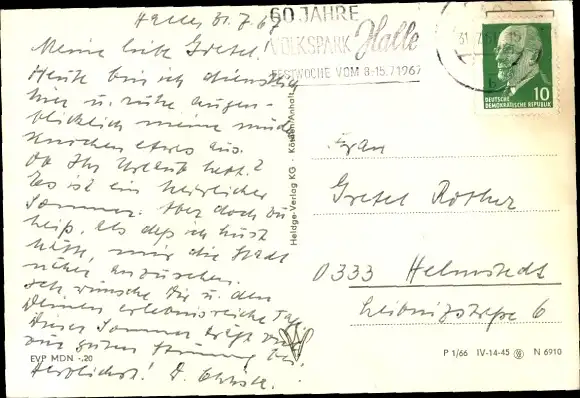 Halle, 31.7.67
Meine liebe Gretel!
Heute bin ich dienstlich
hier u. ruhe augen-
blicklich meine müden
Knochen etwas aus.
Ob Ihr Urlaub habt?
Es ist ein herrlicher
Sommer. Aber doch zu
heiß, als daß ich Lust
hätte, mir die Stadt
näher anzusehen.
Ich wünsche Dir u. den
Deinen erlebnisreiche Tage.
Dieser Sommer trägt viel
zur guten Stimmung bei.
Herzlichst!
60 JAHRE
VOLKSPARK Halle
FESTWOCHE VOM 8.-15.7.1967
DEUTSCHE
DEMOKRATISCHE REPUBLIK
10
Frau
Gretel Rother
0333 Helmstedt
Leibnizstraße 6
Heldge-Verlag KG · Köthen/Anhalt
EVP MDN -,20
P 1/66 IV-14-45 N 6910